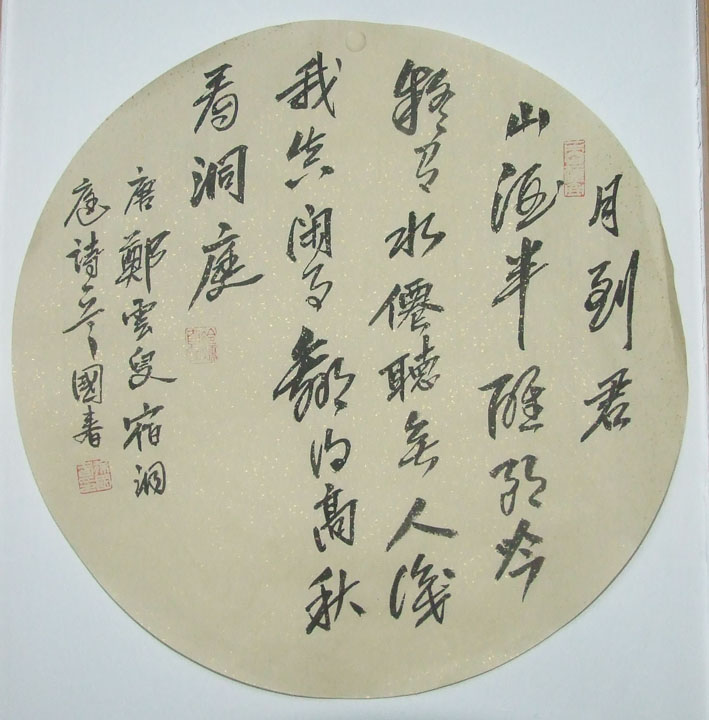 月到君
山酒半醒朗吟
疑有水僊聽無人識
我真閑事贏得高秋
看洞庭
唐鄭雲叟宿洞
庭詩一首國春